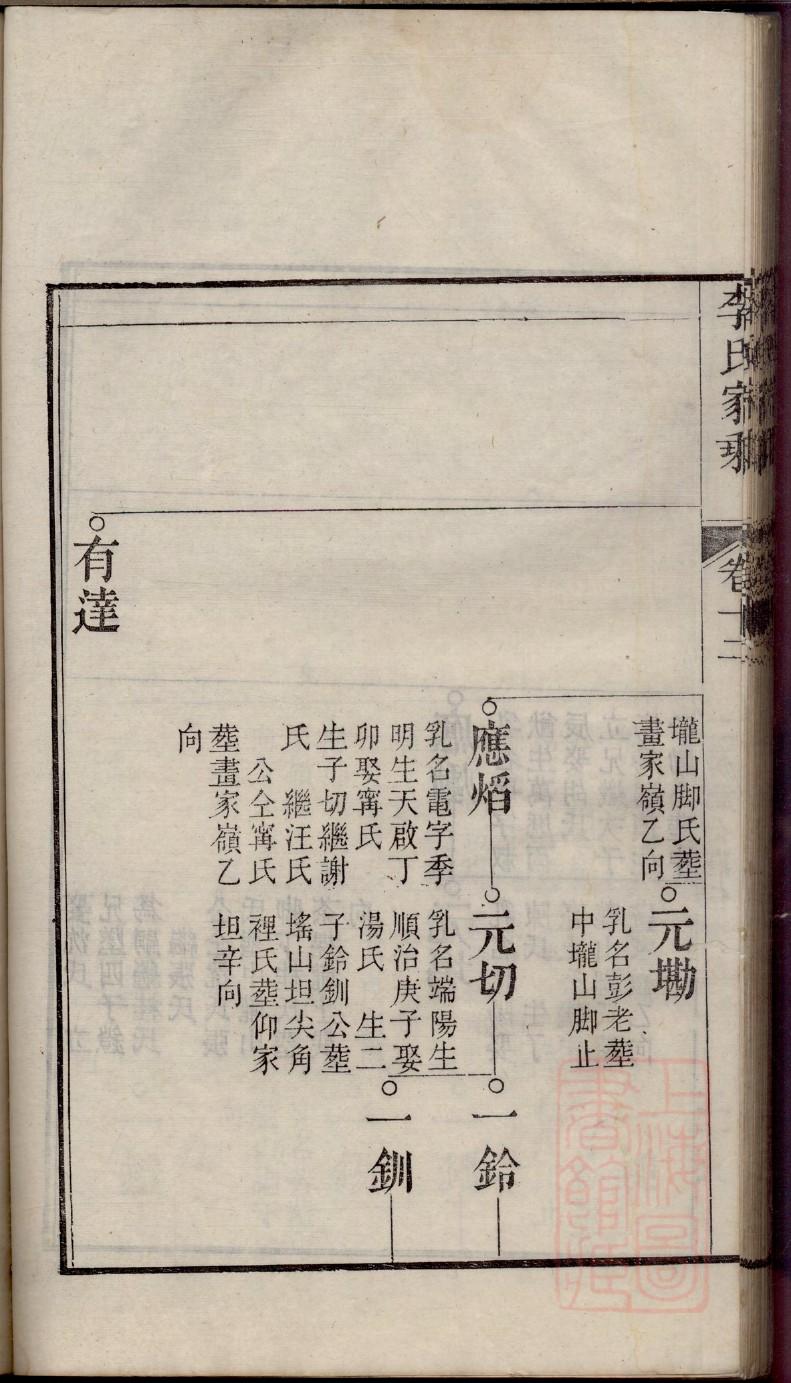 李氏家乘
卷十二
壠山脚氏塟
畫家嶺乙向
元墈
乳名彭老塟
中壠山脚止
應焰
乳名電字季
明生天啟丁
卯娶甯氏
生子切繼謝
氏　繼汪氏
公仝甯氏
塟畫家嶺乙
向
元切
乳名端陽生
順治庚子娶
湯氏　生二
子鈴釧公塟
塔山坦尖角
裡氏塟仰家
坦辛向
一鈴
一釧
有達